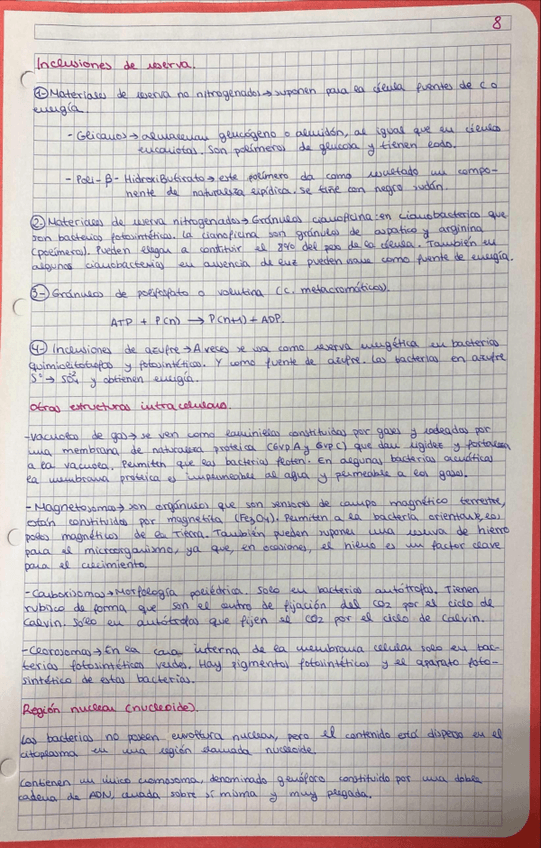 8
Inclusiones de reserva.
① Materiales de reserva no nitrogenados → suponen para la célula fuentes de C o
energía.
- Glicanos → almacenan glucógeno o almidón, al igual que en células
eucariotas. Son polímeros de glucosa y tienen
- Poli-β-HidroxiButirato → este polímero da como resultado un compo-
nente de naturaleza lipídica, se tiñe con negro sudán.
② Materiales de reserva nitrogenados → Gránulos cianoficina: en cianobacterias que
son bacterias fotosintéticas. La cianoficina son gránulos de aspártico y arginina
(polímeros). Pueden llegar a constituir el del peso de la célula. También en
algunas cianobacterias en ausencia de luz pueden usarse como fuente de energía.
③- Gránulos de polifosfato o volutina (c. metacromáticos).
ATP + P(n) → P(n+1) + ADP.
④- Inclusiones de azufre → A veces se usa como reserva energética en bacterias
quimiolitotrofas y fotosintéticas. Y como fuente de azufre. Las bacterias en azufre
S° → SO₄²⁻ y obtienen energía.
Otras estructuras intracelulares.
- Vacuolas de gas → se ven como constituidas por gases y rodeadas por
una membrana de naturaleza proteica (GvpA y GvpC) que dan rigidez y fortaleza
a la vacuola. Permiten que las bacterias floten. En algunas bacterias acuáticas
la membrana proteica es impermeable al agua y permeable a los gases.
- Magnetosomas → son orgánulos que son sensores de campo magnético terrestre,
están constituidos por magnetita (Fe₃O₄). Permiten a la bacteria orientarse, los
polos magnéticos de la Tierra. También pueden suponer una reserva de hierro
para el microorganismo, ya que, en ocasiones, el hierro es un factor clave
para el crecimiento.
- Carboxisomas → Morfología poliédrica. Solo en bacterias autótrofas. Tienen
rubisco de forma que son el centro de fijación del CO2 por el ciclo de
Calvin. Solo en autótrofas que fijen el CO2 por el ciclo de Calvin.
- Clorosomas → En la cara interna de la membrana celular solo en bac-
terias fotosintéticas verdes. Hay pigmentos fotosintéticos y el aparato foto-
sintético de estas bacterias.
Región nuclear (nucleoide).
Las bacterias no poseen envoltura nuclear, pero el contenido está disperso en el
citoplasma en una región llamada nucleoide.
Contienen un único cromosoma, denominado genóforo constituido por una doble
cadena de ADN, cerrada sobre sí misma y muy plegada.